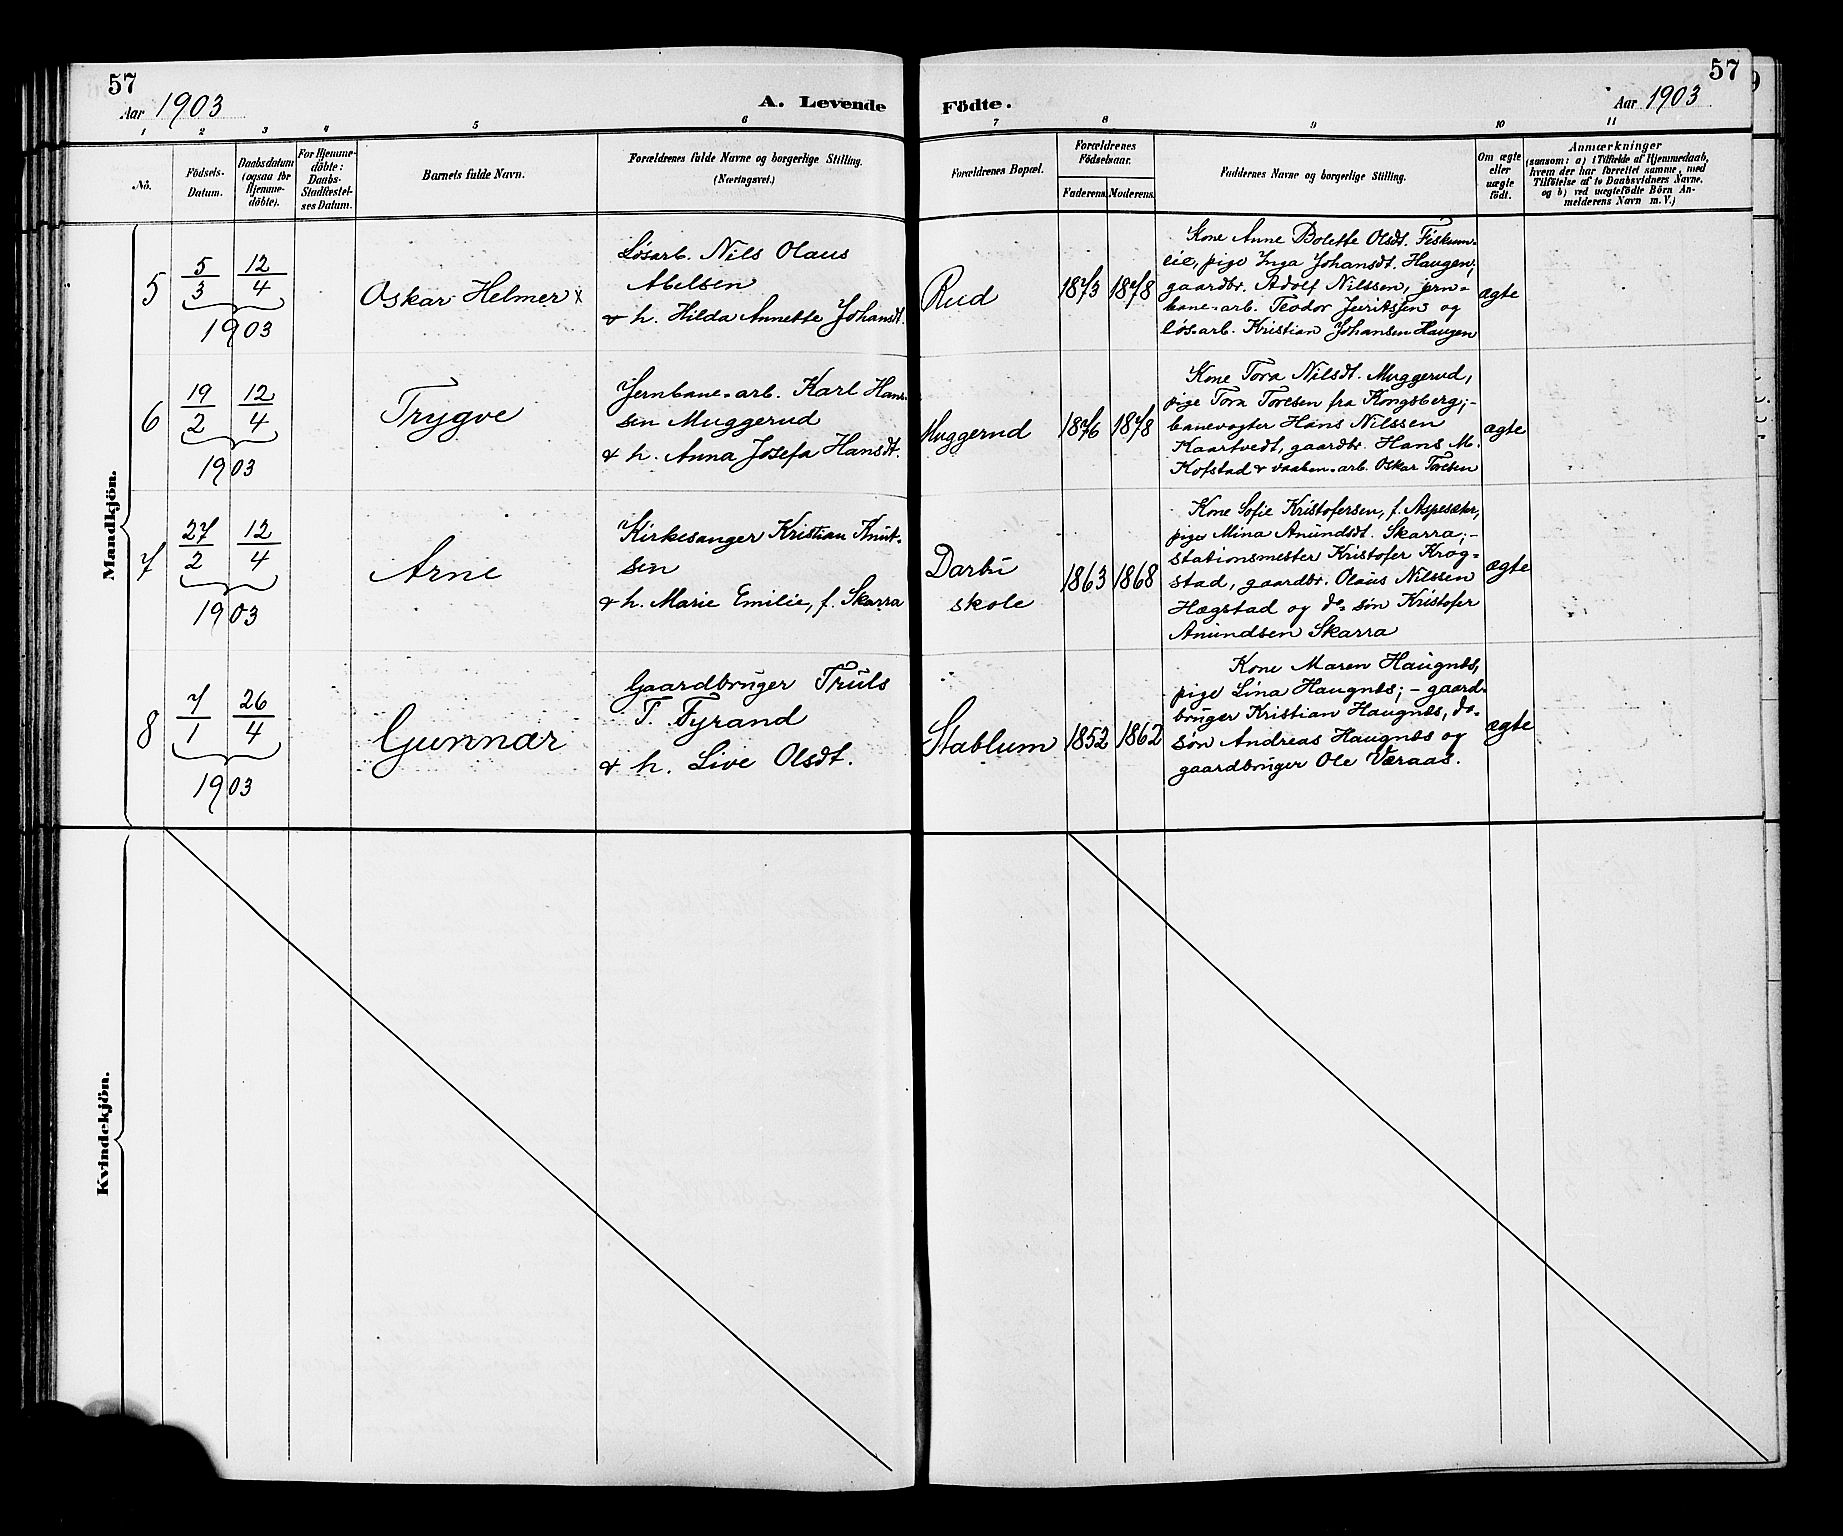 57
Aar 1903
A. Levende
Födte.
57
Aar 1903
1 2 3 4 5 6 7 8 9 10 11
No.
Födsels-
Datum.
Daabsdatum
(ogsaa for
Hjemme-
döbte).
For Hjemme-
döbte:
Daabs-
Stadfæstel-
ses Datum.
Barnets fulde Navn.
Forældrenes fulde Navne og borgerlige Stilling.
(Næringsvei.)
Forældrenes Bopæl.
Forældrenes
Födselsaar.
Faderens.
Moderens.
Faddernes Navne og borgerlige Stilling.
Om ægte
eller
uægte
födt.
Anmærkninger
(saasom: a) i Tilfælde af Hjemmedaab,
hvem der har forrettet samme, med
Tilföielse af to Daabsvidners Navne,
og b) ved uægtefödte Börn An-
melderens Navn m. V.)
Mandkjön.
5
5/3 12/4
1903
Oskar Helmer x
Løsarb. Nils Olaus
Abelsen
& h. Hilda Annette Johansdt.
Rud
1873
1878
Kone Anne Bolette Olsdt. Fiskum-
eie, pige Inga Johansdt. Haugen;
gaardbr. Adolf Nilssen, jern-
bane-arb. Teodor Juritsen og
løsarb. Kristian Johansen Haugen
ægte
6
19/2 12/4
1903
Trygve
Jernbane-arb. Karl Han-
sen Muggerud
& h. Anna Josefa Hansdt.
Muggerud
1876
1878
Kone Tora Nilsdt. Muggerud,
pige Tora Toresen fra Kongsberg;-
banevogter Hans Nilssen
Kaartvedt, gaardbr. Hans M.
Kofstad & vaaben-arb. Oskar Toresen
ægte
7
27/2 12/4
1903
Arne
Kirkesanger Kristian Knut-
sen
& h. Marie Emilie, f. Skarra
Darbu
skole
1863
1868
Kone Sofie Kristofersen, f. Aspesæter,
pige Mina Anundsdt. Skarra;-
stationsmester Kristofer Krog-
stad, gaardbr. Olaus Nilssen
Hægstad og do- søn Kristofer
Anundsen Skarra
ægte
8
7/1 26/4
1903
Gunnar
Gaardbruger Truls
T. Fyrand
& h. Live Olsdt.
Stablum
1852
1862
Kone Maren Haugnes,
pige Lina Haugnes; - gaard-
bruger Kristian Haugnes, do-
søn Andreas Haugnes og
gaardbruger Ole Væraas.
ægte
Kvindekjön.